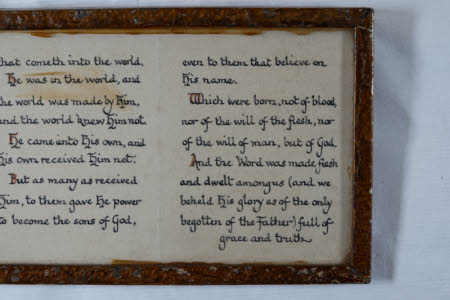 that cometh into the world.
He was in the world, and
the world was made by Him,
and the world knew Him not.
He came into His own, and
His own received Him not.
But as many as received
Him, to them gave He power
to become the sons of God,
even to them that believe on
His name.
Which were born, not of blood,
nor of the will of the flesh, nor
of the will of man, but of God.
And the Word was made flesh
and dwelt among us (and we
beheld His glory as of the only
begotten of the Father) full of
grace and truth.